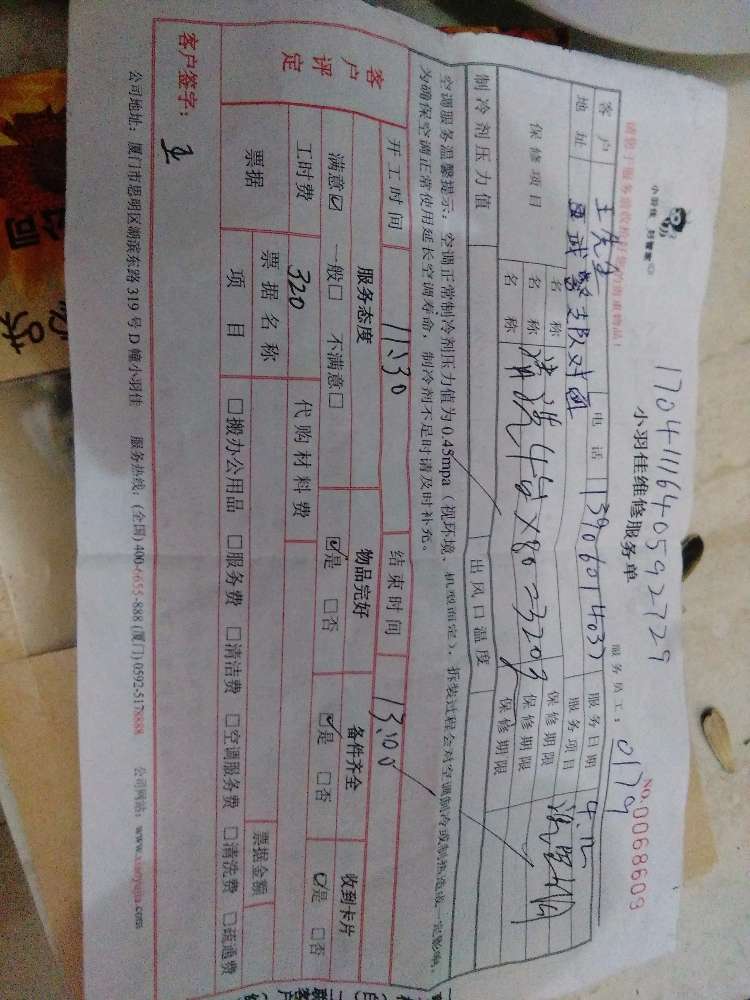 17041116405927729
小羽佳 好管家
小羽佳维修服务单
NO.0068609
请您于服务前收检好您的贵重物品！
服务员工： 0179
客户 王先生 电话 13906014037 服务日期 4.12
地址 对面 服务项目
保修项目 名称 清洗4台×80=320 保修期限
名称 保修期限
名称 保修期限
制冷剂压力值 出风口温度
空调服务温馨提示：空调正常制冷剂压力值为0.45mpa（视环境、机型而定），拆装过程会对空调制冷或制热造成一定影响，
为确保空调正常使用延长空调寿命，制冷剂不足时请及时补充。
开工时间 11:30 结束时间 13:00
客户评定 服务态度 物品完好 备件齐全 收到卡片
满意☑ 一般□ 不满意□ ☑是 □否 ☑是 □否 ☑是 □否
工时费 320 代购材料费
票据 票据名称 票据金额
项目 □搬办公用品 □服务费 □清洁费 □空调服务费 □清洗费 □疏通费
客户签字： 王
公司地址：厦门市思明区湖滨东路319号D幢小羽佳 服务热线：(全国)400-6655-888 (厦门)0592-5178888 公司网站：www.xiaoyujia.com
公司
味